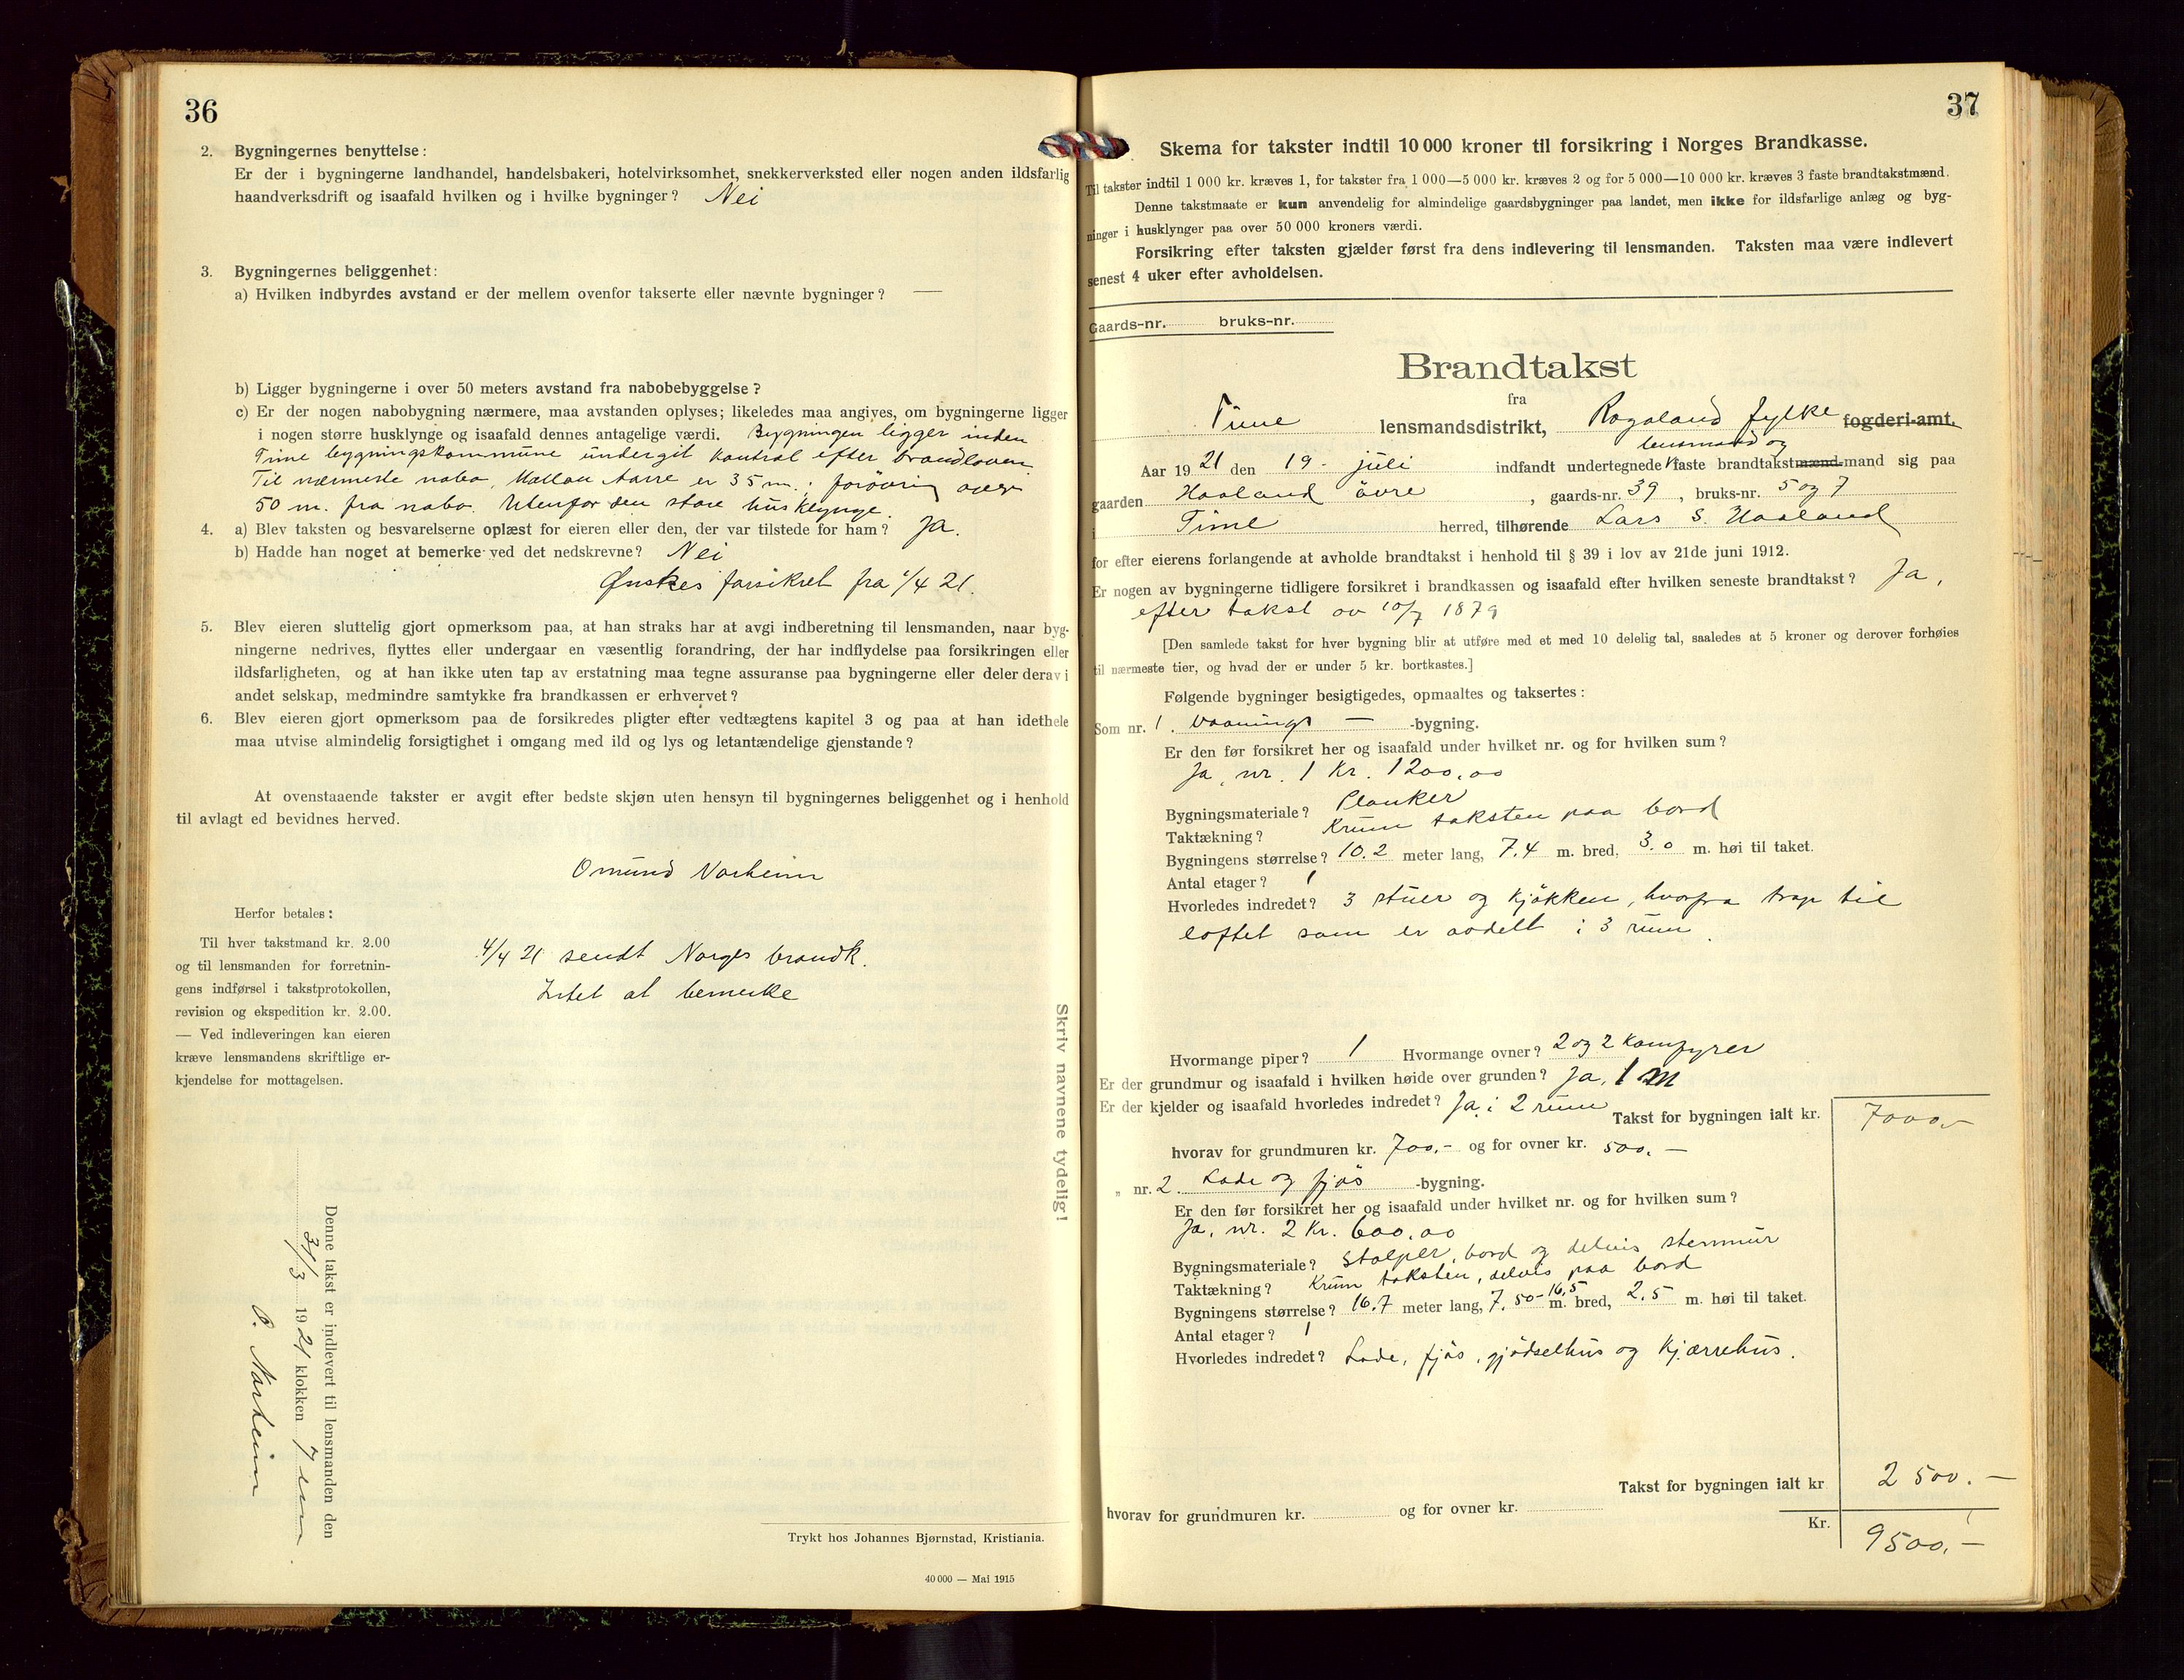 36
2. Bygningernes benyttelse:
Er der i bygningerne landhandel, handelsbakeri, hotelvirksomhet, snekkerverksted eller nogen anden ildsfarlig
haandverksdrift og isaafald hvilken og i hvilke bygninger? Nei
3. Bygningernes beliggenhet:
a) Hvilken indbyrdes avstand er der mellem ovenfor takserte eller nævnte bygninger? —
b) Ligger bygningerne i over 50 meters avstand fra nabobebyggelse?
c) Er der nogen nabobygning nærmere, maa avstanden oplyses; likeledes maa angives, om bygningerne ligger
i nogen større husklynge og isaafald dennes antagelige værdi. Bygningen ligger inden
Time bygningskommune undergit kontrol efter brandloven.
Til nærmeste nabo, Aarre er 35 m.; forøvrig over
50 m. fra nabo. Utenfor den store husklynge.
4. a) Blev taksten og besvarelserne oplæst for eieren eller den, der var tilstede for ham? Ja.
b) Hadde han noget at bemerke ved det nedskrevne? Nei
Ønskes forsikret fra 1/4 21.
5. Blev eieren sluttelig gjort opmerksom paa, at han straks har at avgi indberetning til lensmanden, naar byg-
ningerne nedrives, flyttes eller undergaar en væsentlig forandring, der har indflydelse paa forsikringen eller
ildsfarligheten, og at han ikke uten tap av erstatning maa tegne assuranse paa bygningerne eller deler derav i
andet selskap, medmindre samtykke fra brandkassen er erhvervet?
6. Blev eieren gjort opmerksom paa de forsikredes pligter efter vedtægtens kapitel 3 og paa at han idethele
maa utvise almindelig forsigtighet i omgang med ild og lys og letantændelige gjenstande?
At ovenstaaende takster er avgit efter bedste skjøn uten hensyn til bygningernes beliggenhet og i henhold
til avlagt ed bevidnes herved.
Omund Norheim
Herfor betales:
Til hver takstmand kr. 2.00
og til lensmanden for forretnin-
gens indførsel i takstprotokollen,
revision og ekspedition kr. 2.00.
— Ved indleveringen kan eieren
kræve lensmandens skriftlige er-
kjendelse for mottagelsen.
4/4 21 sendt Norges brandk.
Intet at bemerke
Denne takst er indlevert til lensmanden den
31/3 1921 klokken 7 em
O. Norheim
Skriv navnene tydelig!
Trykt hos Johannes Bjørnstad, Kristiania.
40 000 — Mai 1915
37
Skema for takster indtil 10 000 kroner til forsikring i Norges Brandkasse.
Til takster indtil 1 000 kr. kræves 1, for takster fra 1 000—5 000 kr. kræves 2 og for 5 000—10 000 kr. kræves 3 faste brandtakstmænd.
Denne takstmaate er kun anvendelig for almindelige gaardsbygninger paa landet, men ikke for ildsfarlige anlæg og byg-
ninger i husklynger paa over 50 000 kroners værdi.
Forsikring efter taksten gjælder først fra dens indlevering til lensmanden. Taksten maa være indlevert
senest 4 uker efter avholdelsen.
Gaards-nr. bruks-nr.
Brandtakst
fra
Time lensmandsdistrikt, Rogaland fylke fogderi-amt.
lensmand og
Aar 1921 den 19. juli indfandt undertegnede faste brandtakstmænd mand sig paa
gaarden Haaland øvre, gaards-nr. 39, bruks-nr. 5 og 7
i Time herred, tilhørende Lars S. Haaland
for efter eierens forlangende at avholde brandtakst i henhold til § 39 i lov av 21de juni 1912.
Er nogen av bygningerne tidligere forsikret i brandkassen og isaafald efter hvilken seneste brandtakst? Ja,
efter takst av 10/7 1879
[Den samlede takst for hver bygning blir at utføre med et med 10 delelig tal, saaledes at 5 kroner og derover forhøies
til nærmeste tier, og hvad der er under 5 kr. bortkastes.]
Følgende bygninger besigtigedes, opmaaltes og taksertes:
Som nr. 1. vaanings — -bygning.
Er den før forsikret her og isaafald under hvilket nr. og for hvilken sum?
Ja, nr. 1 Kr. 1200,00
Bygningsmateriale? Planker
Taktækning? Krum taksten paa bord
Bygningens størrelse? 10.2 meter lang, 7.4 m. bred, 3.0 m. høi til taket.
Antal etager? 1
Hvorledes indredet? 3 stuer og kjøkken, hvorfra trap til
loftet som er avdelt i 3 rum.
Hvormange piper? 1 Hvormange ovner? 2 og 2 komfyrer
Er der grundmur og isaafald i hvilken høide over grunden? Ja, 1 m
Er der kjelder og isaafald hvorledes indredet? Ja, i 2 rum
Takst for bygningen ialt kr. 7000,-
hvorav for grundmuren kr. 700.- og for ovner kr. 500.—
„ nr. 2. Lade og fjøs -bygning.
Er den før forsikret her og isaafald under hvilket nr. og for hvilken sum?
Ja, nr. 2 Kr. 600,00
Bygningsmateriale? Stolper, bord og delvis stenmur
Taktækning? Krum taksten, delvis paa bord
Bygningens størrelse? 16.7 meter lang, 7.50-16.5 m. bred, 2.5 m. høi til taket.
Antal etager? 1
Hvorledes indredet? Lade, fjøs, gjødselhus og kjærrehus.
Takst for bygningen ialt kr 2500.—
hvorav for grundmuren kr. og for ovner kr.
Kr. 9500,—